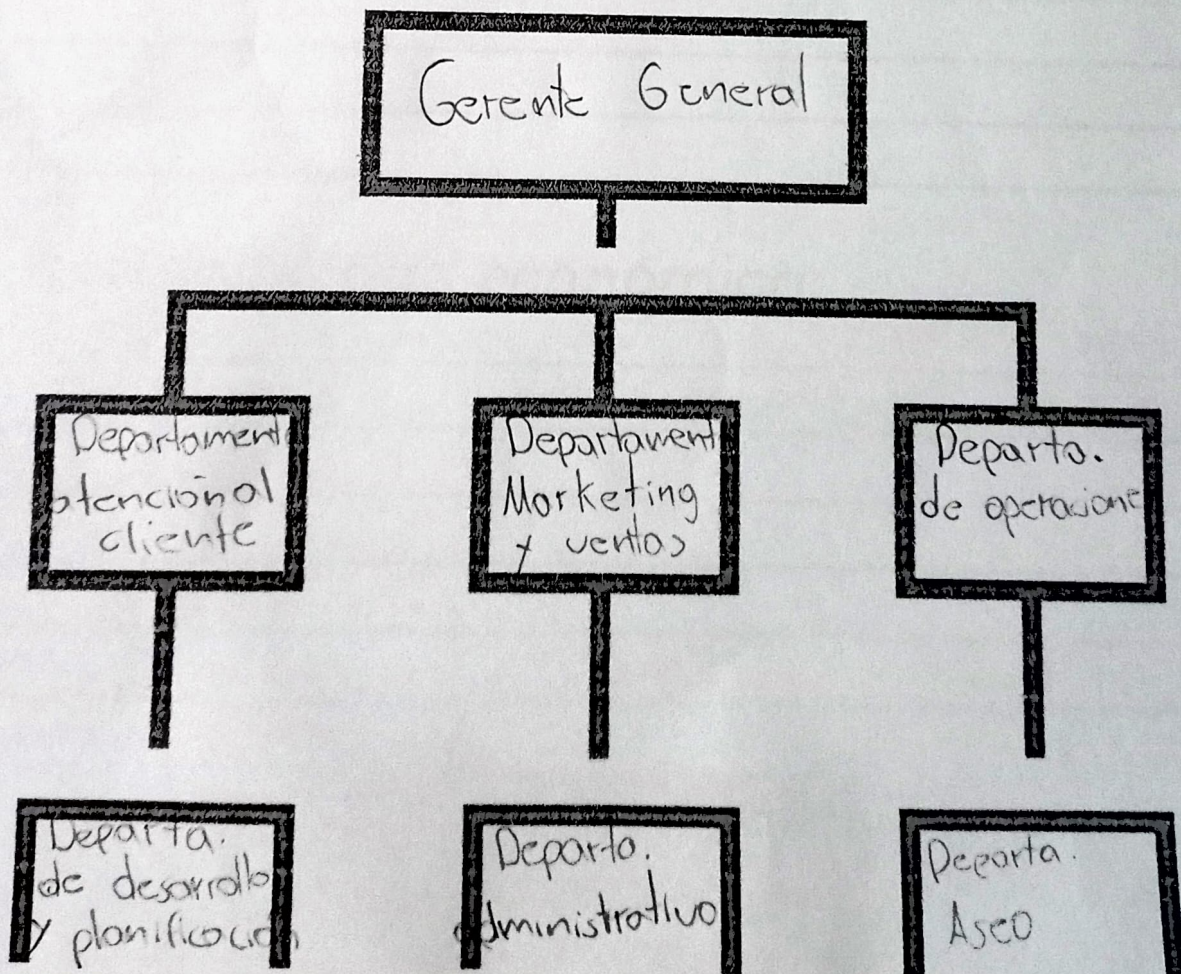 Gerente General
Departamento
atencion al
cliente
Departament
Marketing
y ventas
Departa.
de operacione
Departa.
de desarrollo
y planificación
Departa.
administrativo
Departa.
Aseo